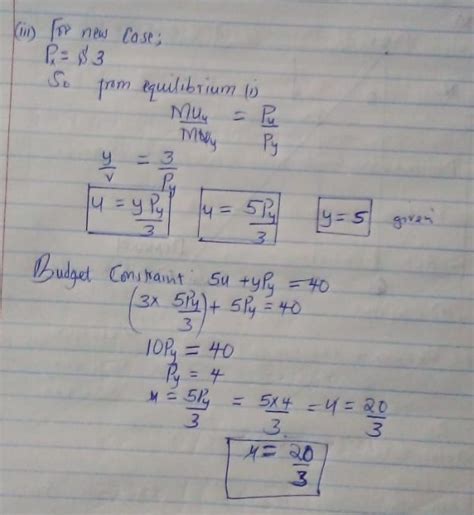 (iii) For new Case;
Px = $ 3
So from equilibrium (i)
MUx/MUy = Px/Py
y/x = 3/Py
x = yPy/3   x = 5Py/3   y = 5 given
Budget Constraint: 5x + yPy = 40
(3 x 5Py/3) + 5Py = 40
10Py = 40
Py = 4
x = 5Py/3 = 5x4/3 = x = 20/3
x = 20/3